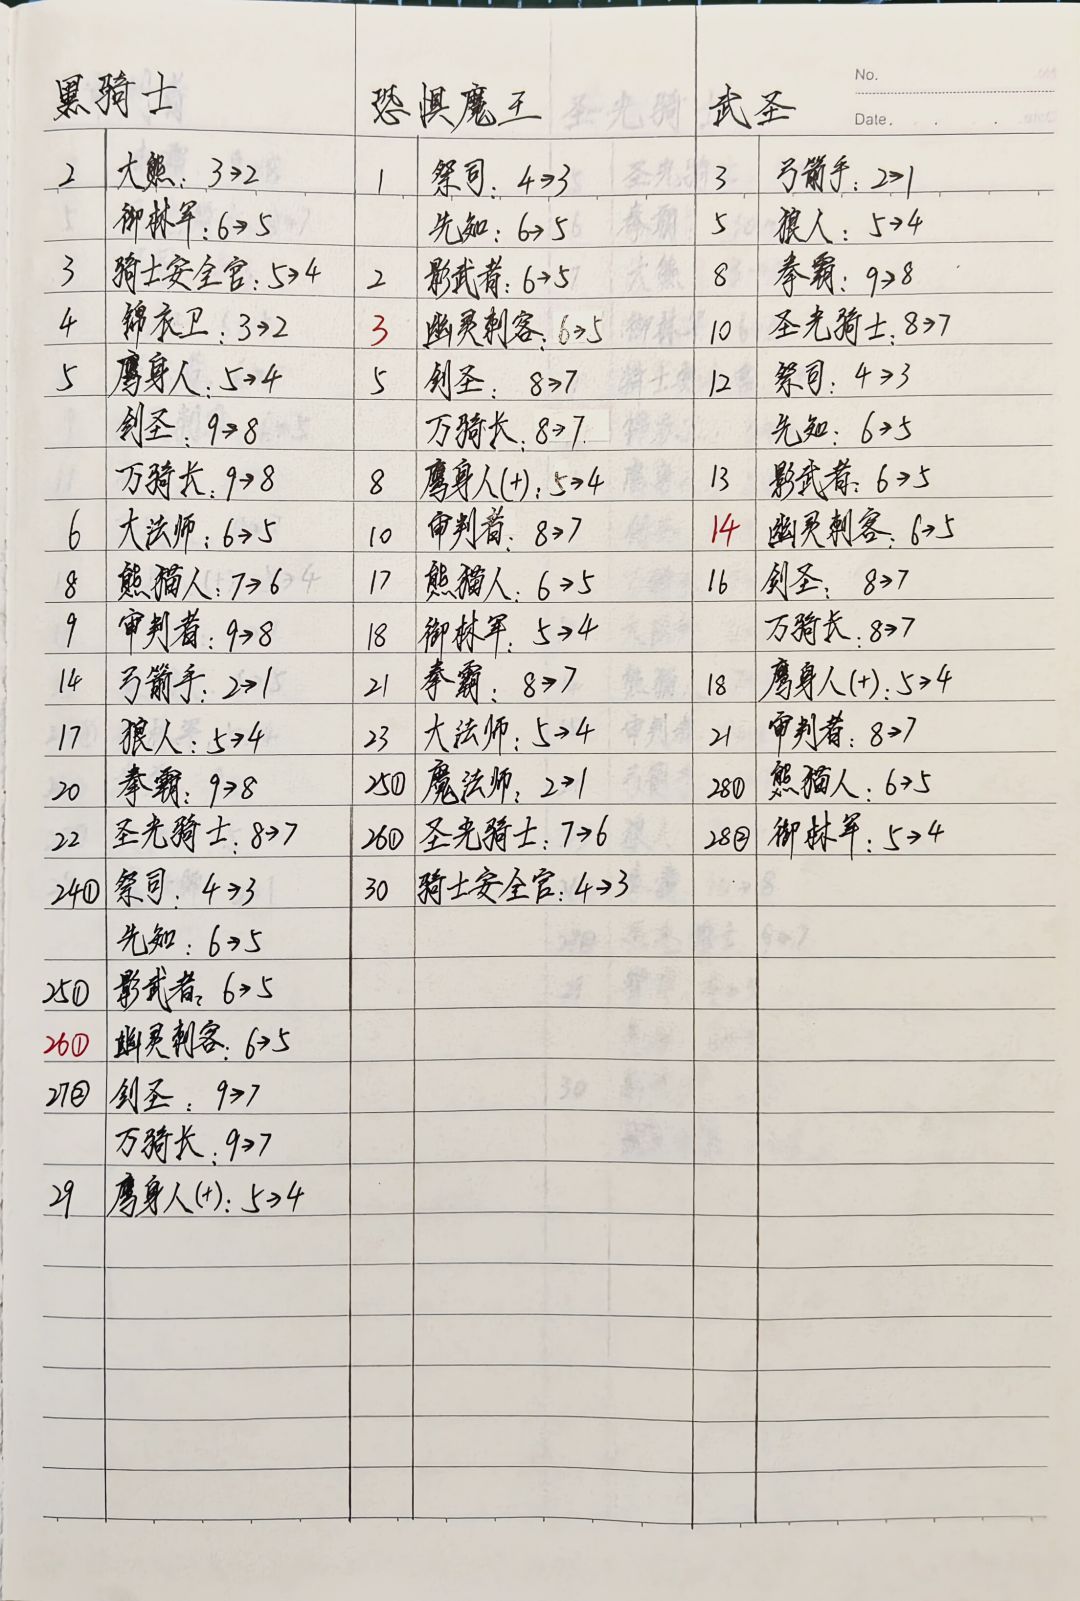 No.
Date.
黑骑士 恐惧魔王 武圣
2 大熊: 3→2 1 祭司: 4→3 3 弓箭手: 2→1
御林军: 6→5 先知: 6→5 5 狼人: 5→4
3 骑士安全官: 5→4 2 影武者: 6→5 8 拳霸: 9→8
4 锦衣卫: 3→2 3 幽灵刺客: 6→5 10 圣光骑士: 8→7
5 鹰身人: 5→4 5 剑圣: 8→7 12 祭司: 4→3
剑圣: 9→8 万骑长: 8→7 先知: 6→5
万骑长: 9→8 8 鹰身人(+): 5→4 13 影武者: 6→5
6 大法师: 6→5 10 审判者: 8→7 14 幽灵刺客: 6→5
8 熊猫人: 7→6 17 熊猫人: 6→5 16 剑圣: 8→7
9 审判者: 9→8 18 御林军: 5→4 万骑长: 8→7
14 弓箭手: 2→1 21 拳霸: 8→7 18 鹰身人(+): 5→4
17 狼人: 5→4 23 大法师: 5→4 21 审判者: 8→7
20 拳霸: 9→8 25① 魔法师: 2→1 28① 熊猫人: 6→5
22 圣光骑士: 8→7 26① 圣光骑士: 7→6 28② 御林军: 5→4
24① 祭司: 4→3 30 骑士安全官: 4→3
先知: 6→5
25① 影武者: 6→5
26① 幽灵刺客: 6→5
27② 剑圣: 9→7
万骑长: 9→7
29 鹰身人(+): 5→4